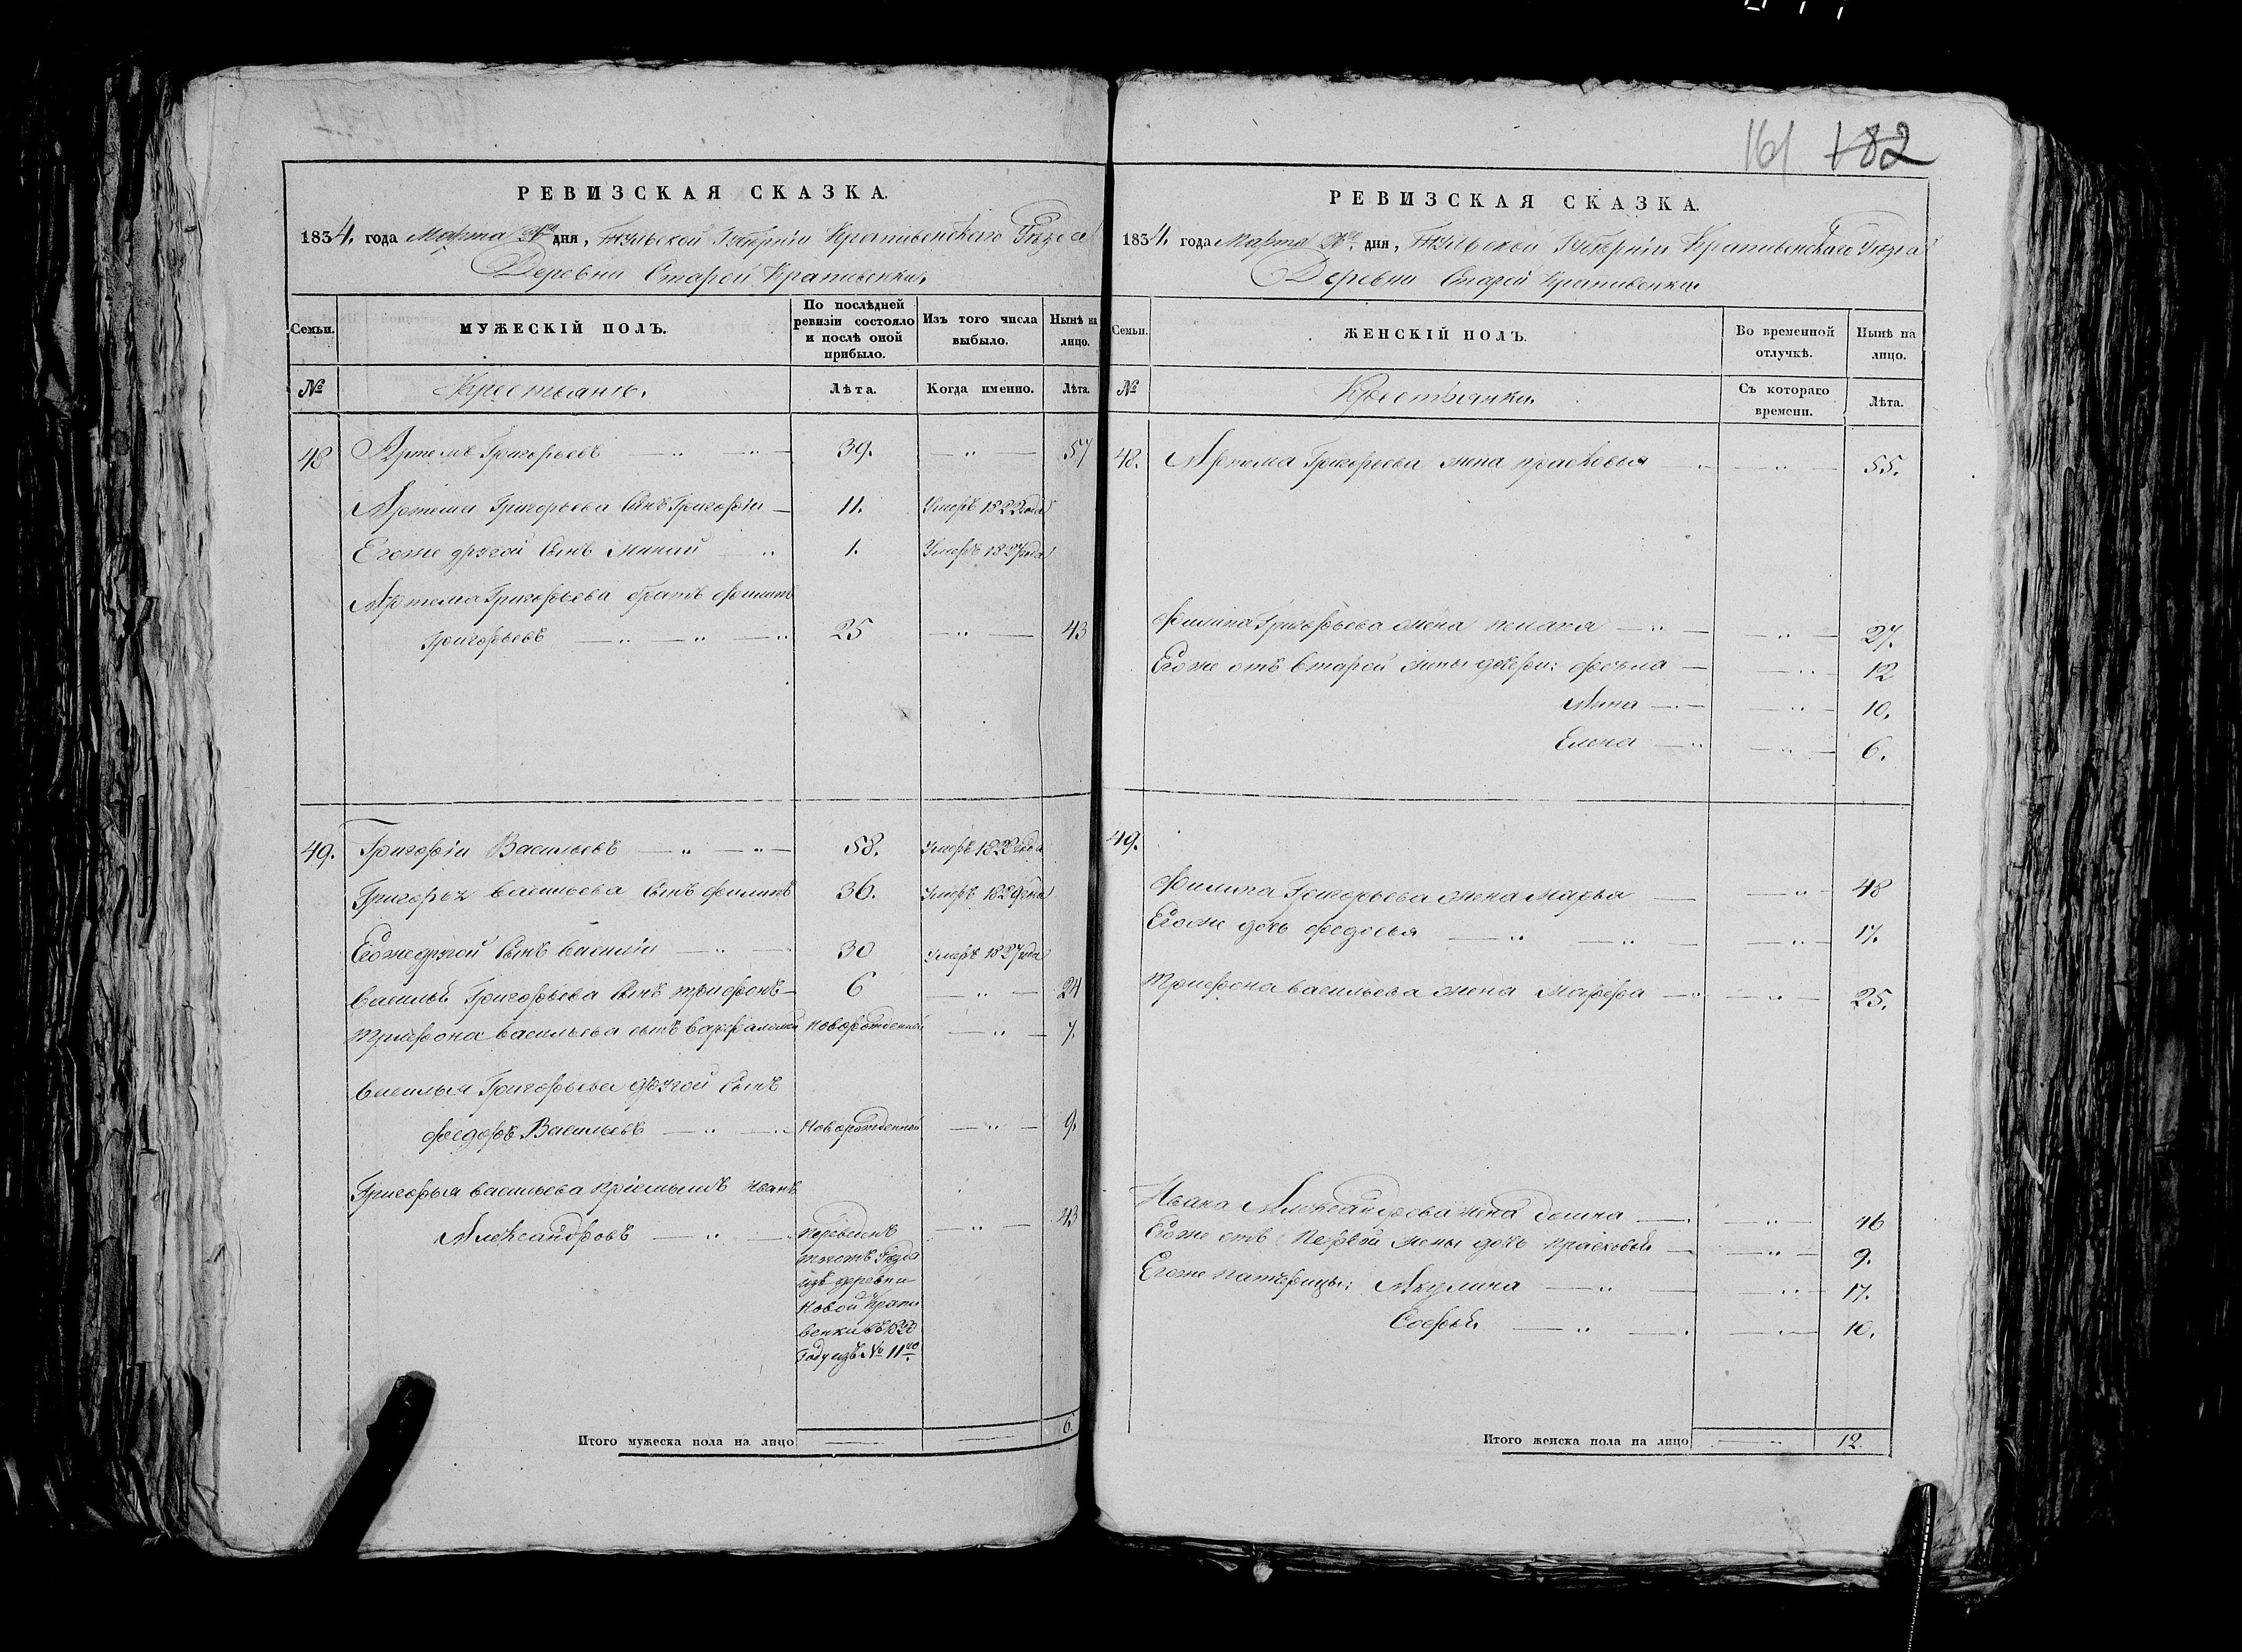 161 182
РЕВИЗСКАЯ СКАЗКА.
1834. года Марта дня, Тульской Губернiи Крапивенского Уѣзда
Деревни Старой Крапивенки.
Семьи.
МУЖЕСКIЙ ПОЛЪ.
По послѣдней ревизiи состояло и послѣ оной прибыло.
Изъ того числа выбыло.
Нынѣ на лицо.
№
Крестьянъ.
Лѣта.
Когда именно.
Лѣта.
48 Артемъ Григорьевъ 39. 57
Артема Григорьева сынъ Григорiй 11. Умеръ 1822 года
Егоже другой сынъ Минай 1. Умеръ 1827 года
Артема Григорьева братъ Филипъ
Григорьевъ 25 43
49. Григорiй Васильевъ 58. Умеръ 1828 года
Григорья Васильева сынъ Филипъ 36. Умеръ 1829 года
Егоже другой сынъ Василiй 30 Умеръ 1827 года
Васильй Григорьева сынъ Трифонъ 6 24
Трифона Васильева сынъ Варфаломей новорожденный 7.
Василья Григорьева другой сынъ
Федоръ Васильевъ новорожденный 9.
Григорья Васильева прiемышъ Иванъ
Александровъ переведенъ 43
тогожъ Уѣзда
изъ деревни
Новой Крапи
венки въ
году изъ № 11го
Итого мужеска пола на лицо 6
РЕВИЗСКАЯ СКАЗКА.
1834. года Марта дня, Тульской Губернiи Крапивенскаго Уѣзда
Деревни Старой Крапивенки.
Семьи.
ЖЕНСКIЙ ПОЛЪ.
Во временной отлучкѣ.
Нынѣ на лицо.
№
Крестьянки.
Съ котораго времени.
Лѣта.
48. Артема Григорьева жена Прасковья 55.
Филипа Григорьева жена Пелагея 27.
Егоже отъ старой жены дочери: Фекла 12
Анна 10.
Елена 6.
49.
Филипа Григорьева жена Марья 48
Егоже дочь Федосья 17.
Трифона Васильева жена Марфа 25.
Ивана Александрова жена Домна 46
Егоже отъ Первой жены дочь Прасковья 9.
Егоже патчерицы: Акулина 17.
Софья 10.
Итого женска пола на лицо 12.